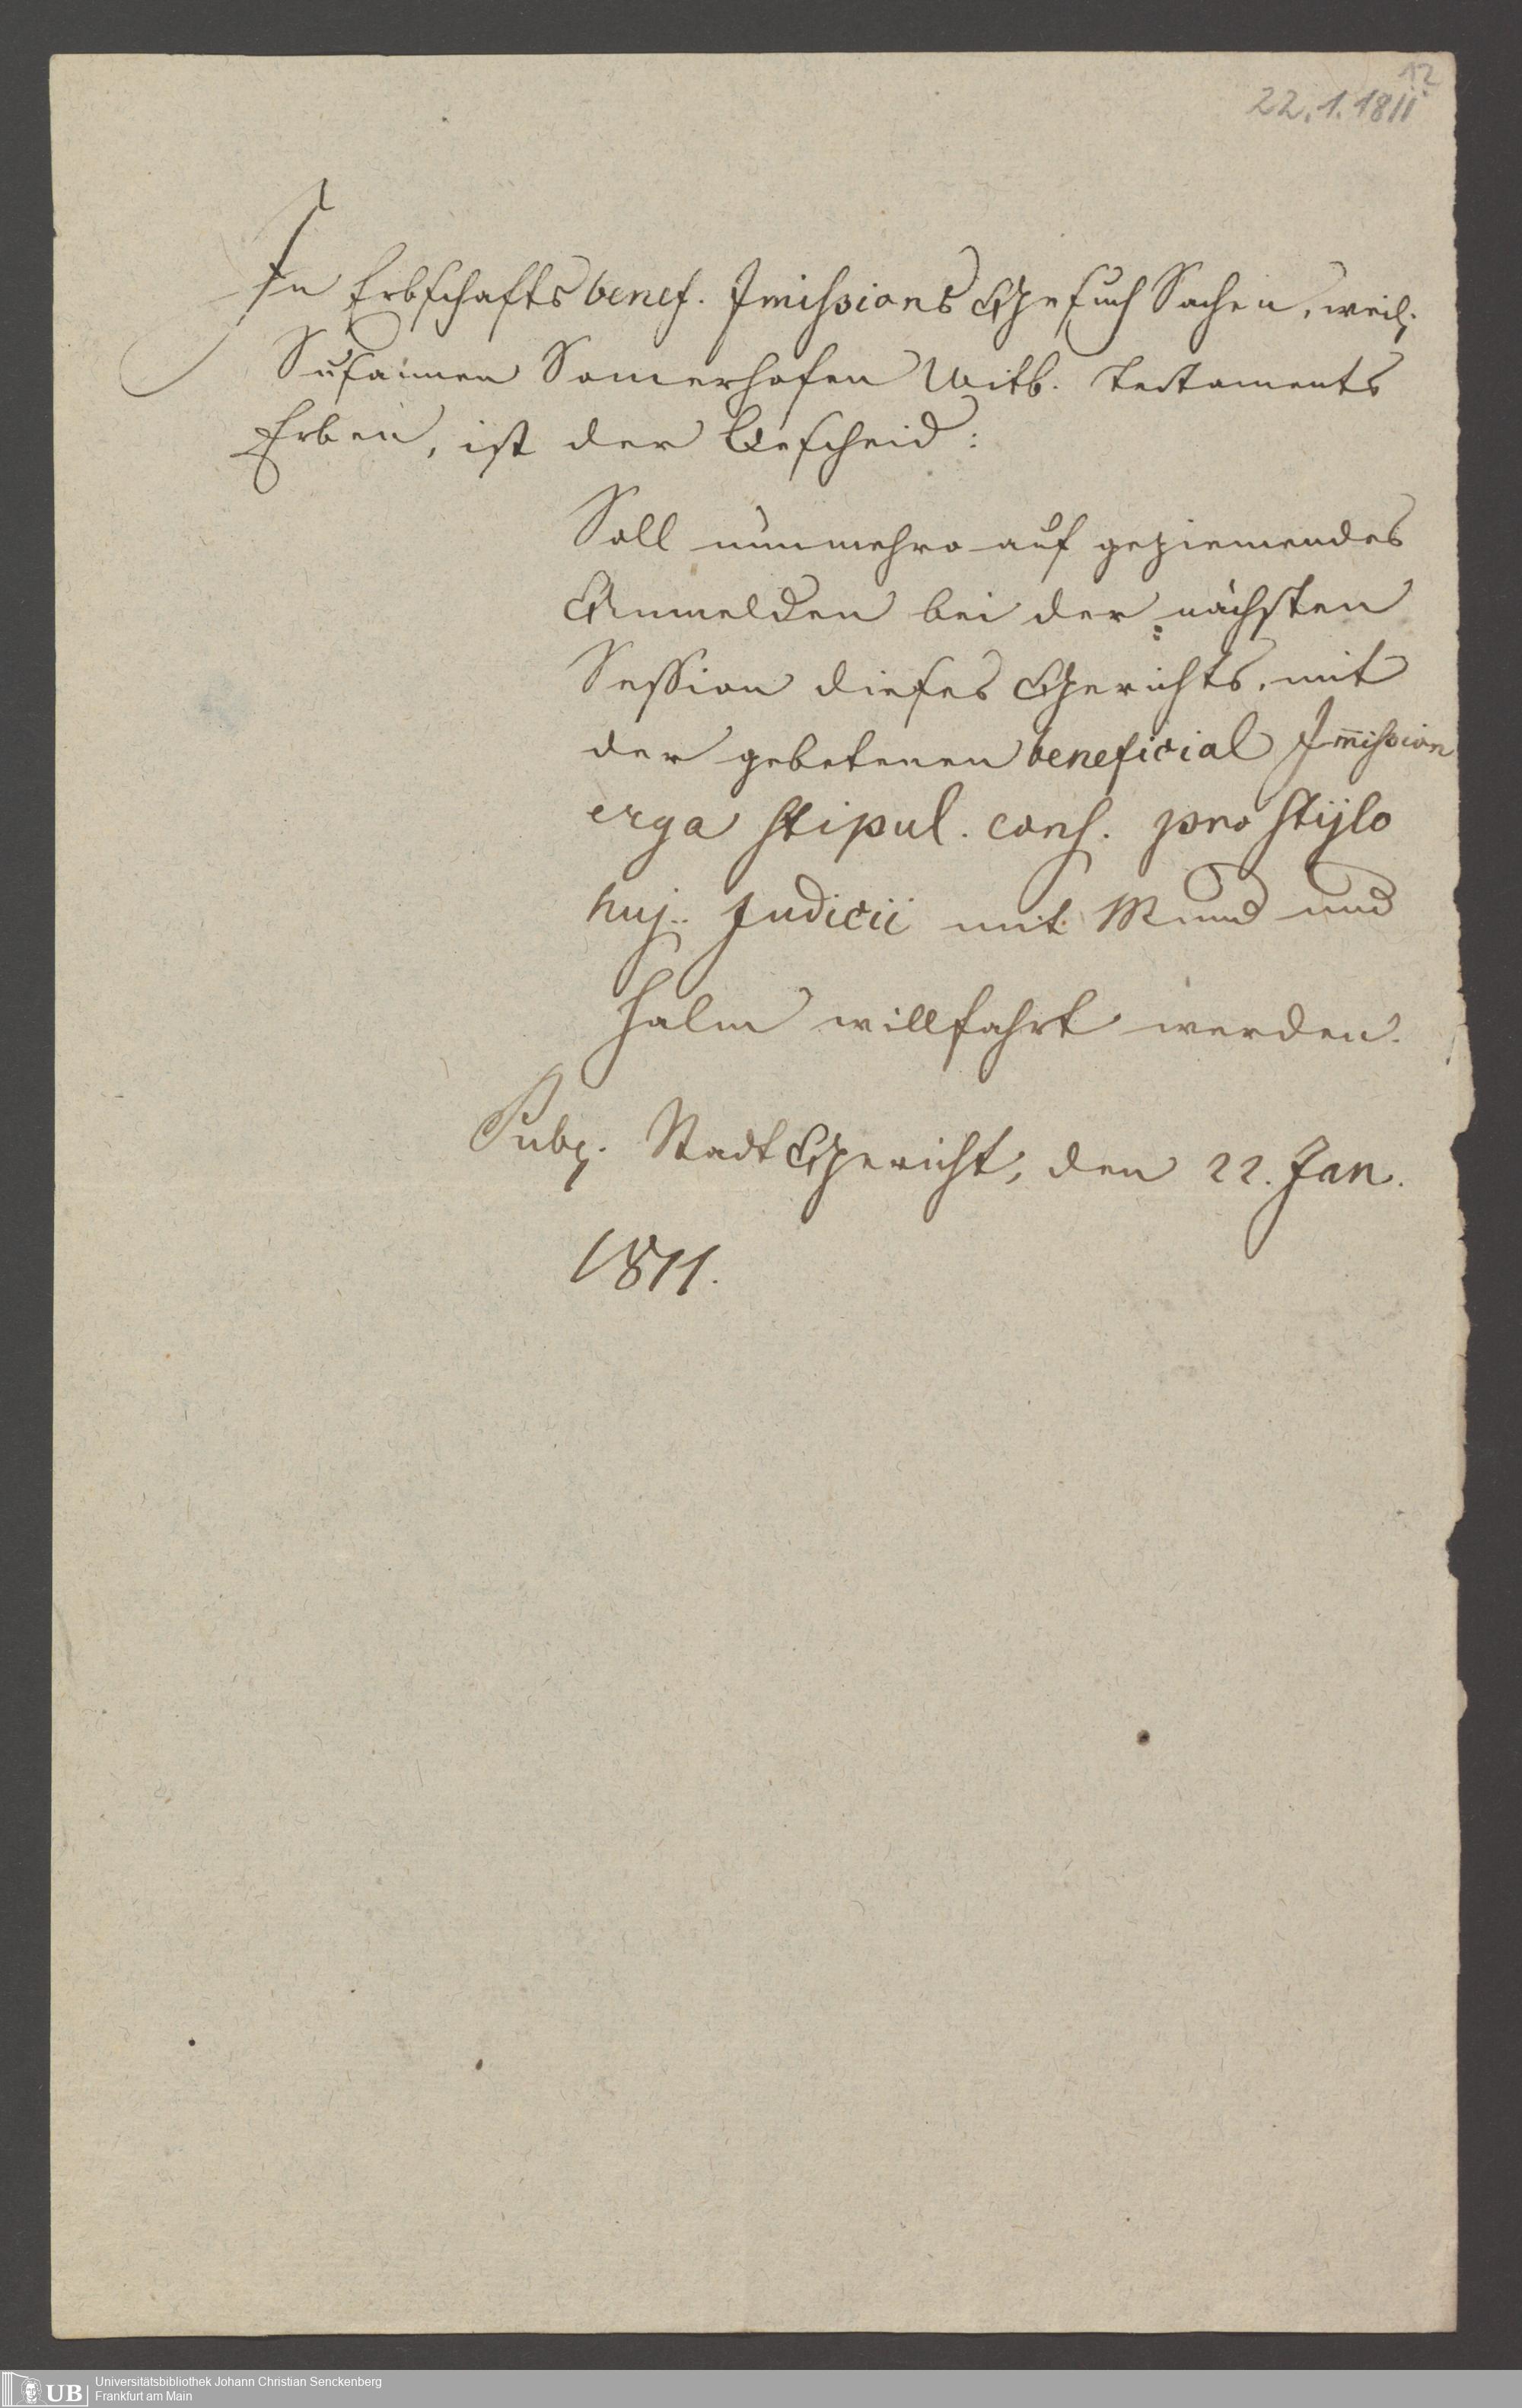 12
22.1.1811
In Erbschafts benef. Im̅issions Gesuch Sachen, weil.
Susannen Som̅erhofen Witb. Testaments
Erben, ist der Bescheid:
Soll nunmehro auf geziemendes
Anmelden bei der nächsten
Session dieses Gerichts, mit
der gebetenen beneficial Im̅ission
erga stipul. cons. pro stÿlo
huj. Judicii mit Mund und
Halm willfahrt werden.
Publ. Stadt Gericht, den 22. Jan.
1811.
UB
Universitätsbibliothek Johann Christian Senckenberg
Frankfurt am Main